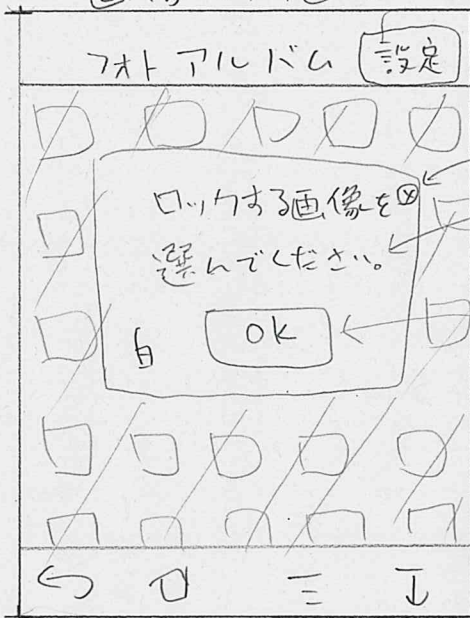 フォトアルバム 設定
ロックする画像を
選んでください。
白 OK